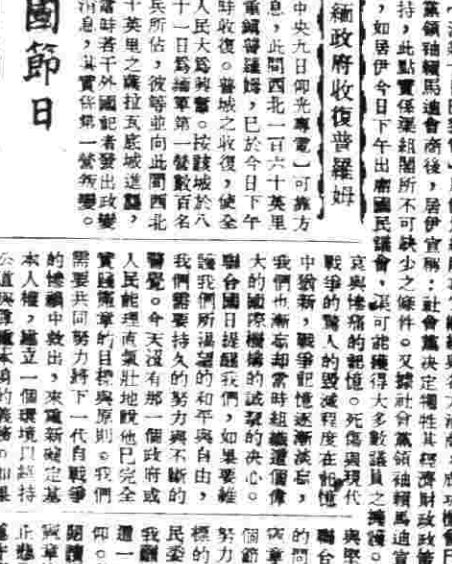 黨領袖賴馬迪會商後，居伊宣稱：社會黨決定犧牲其經濟財政政策
持，此點實係渠組閣所不可缺少之條件。又據社會黨領袖賴馬迪宣
，如居伊今日下午出席國民議會，渠可能獲得大多數議員之擁護。
緬政府收復普羅姆
中央九日仰光專電】可靠方
息，此間西北一百六十英里
重鎮普羅姆，已於今日下午
時收復。普城之收復，使全
人民大為興奮。按該城於八
十一日為緬軍第一營數百名
兵所佔，彼等並向此間西北
十英里之薩拉瓦底城進襲，
當時若干外國記者發出政變
消息，其實係第一營叛變。
國節日
哀與慘痛的記憶。死傷與現代
戰爭的驚人的毀滅程度在記憶
中猶新，戰爭記憶逐漸淡忘，
我們也漸忘却當時組織這個偉
大的國際機構的誠摯的決心。
聯合國日提醒我們，如果要維
護我們所渴望的和平與自由，
我們需要持久的努力與不斷的
警覺。今天沒有那一個政府或
人民能理直氣壯地說他已完全
實踐憲章的目標與原則。我們
需要共同努力將下一代自戰爭
的慘禍中救出，來重新確定基
本人權，建立一個環境以維持
公道與尊重條約的義務。如果
與堅
聯合
的問
憲章
個節
努力
標的
民委
我願
這一
仰。
閱讀
憲章
止悲